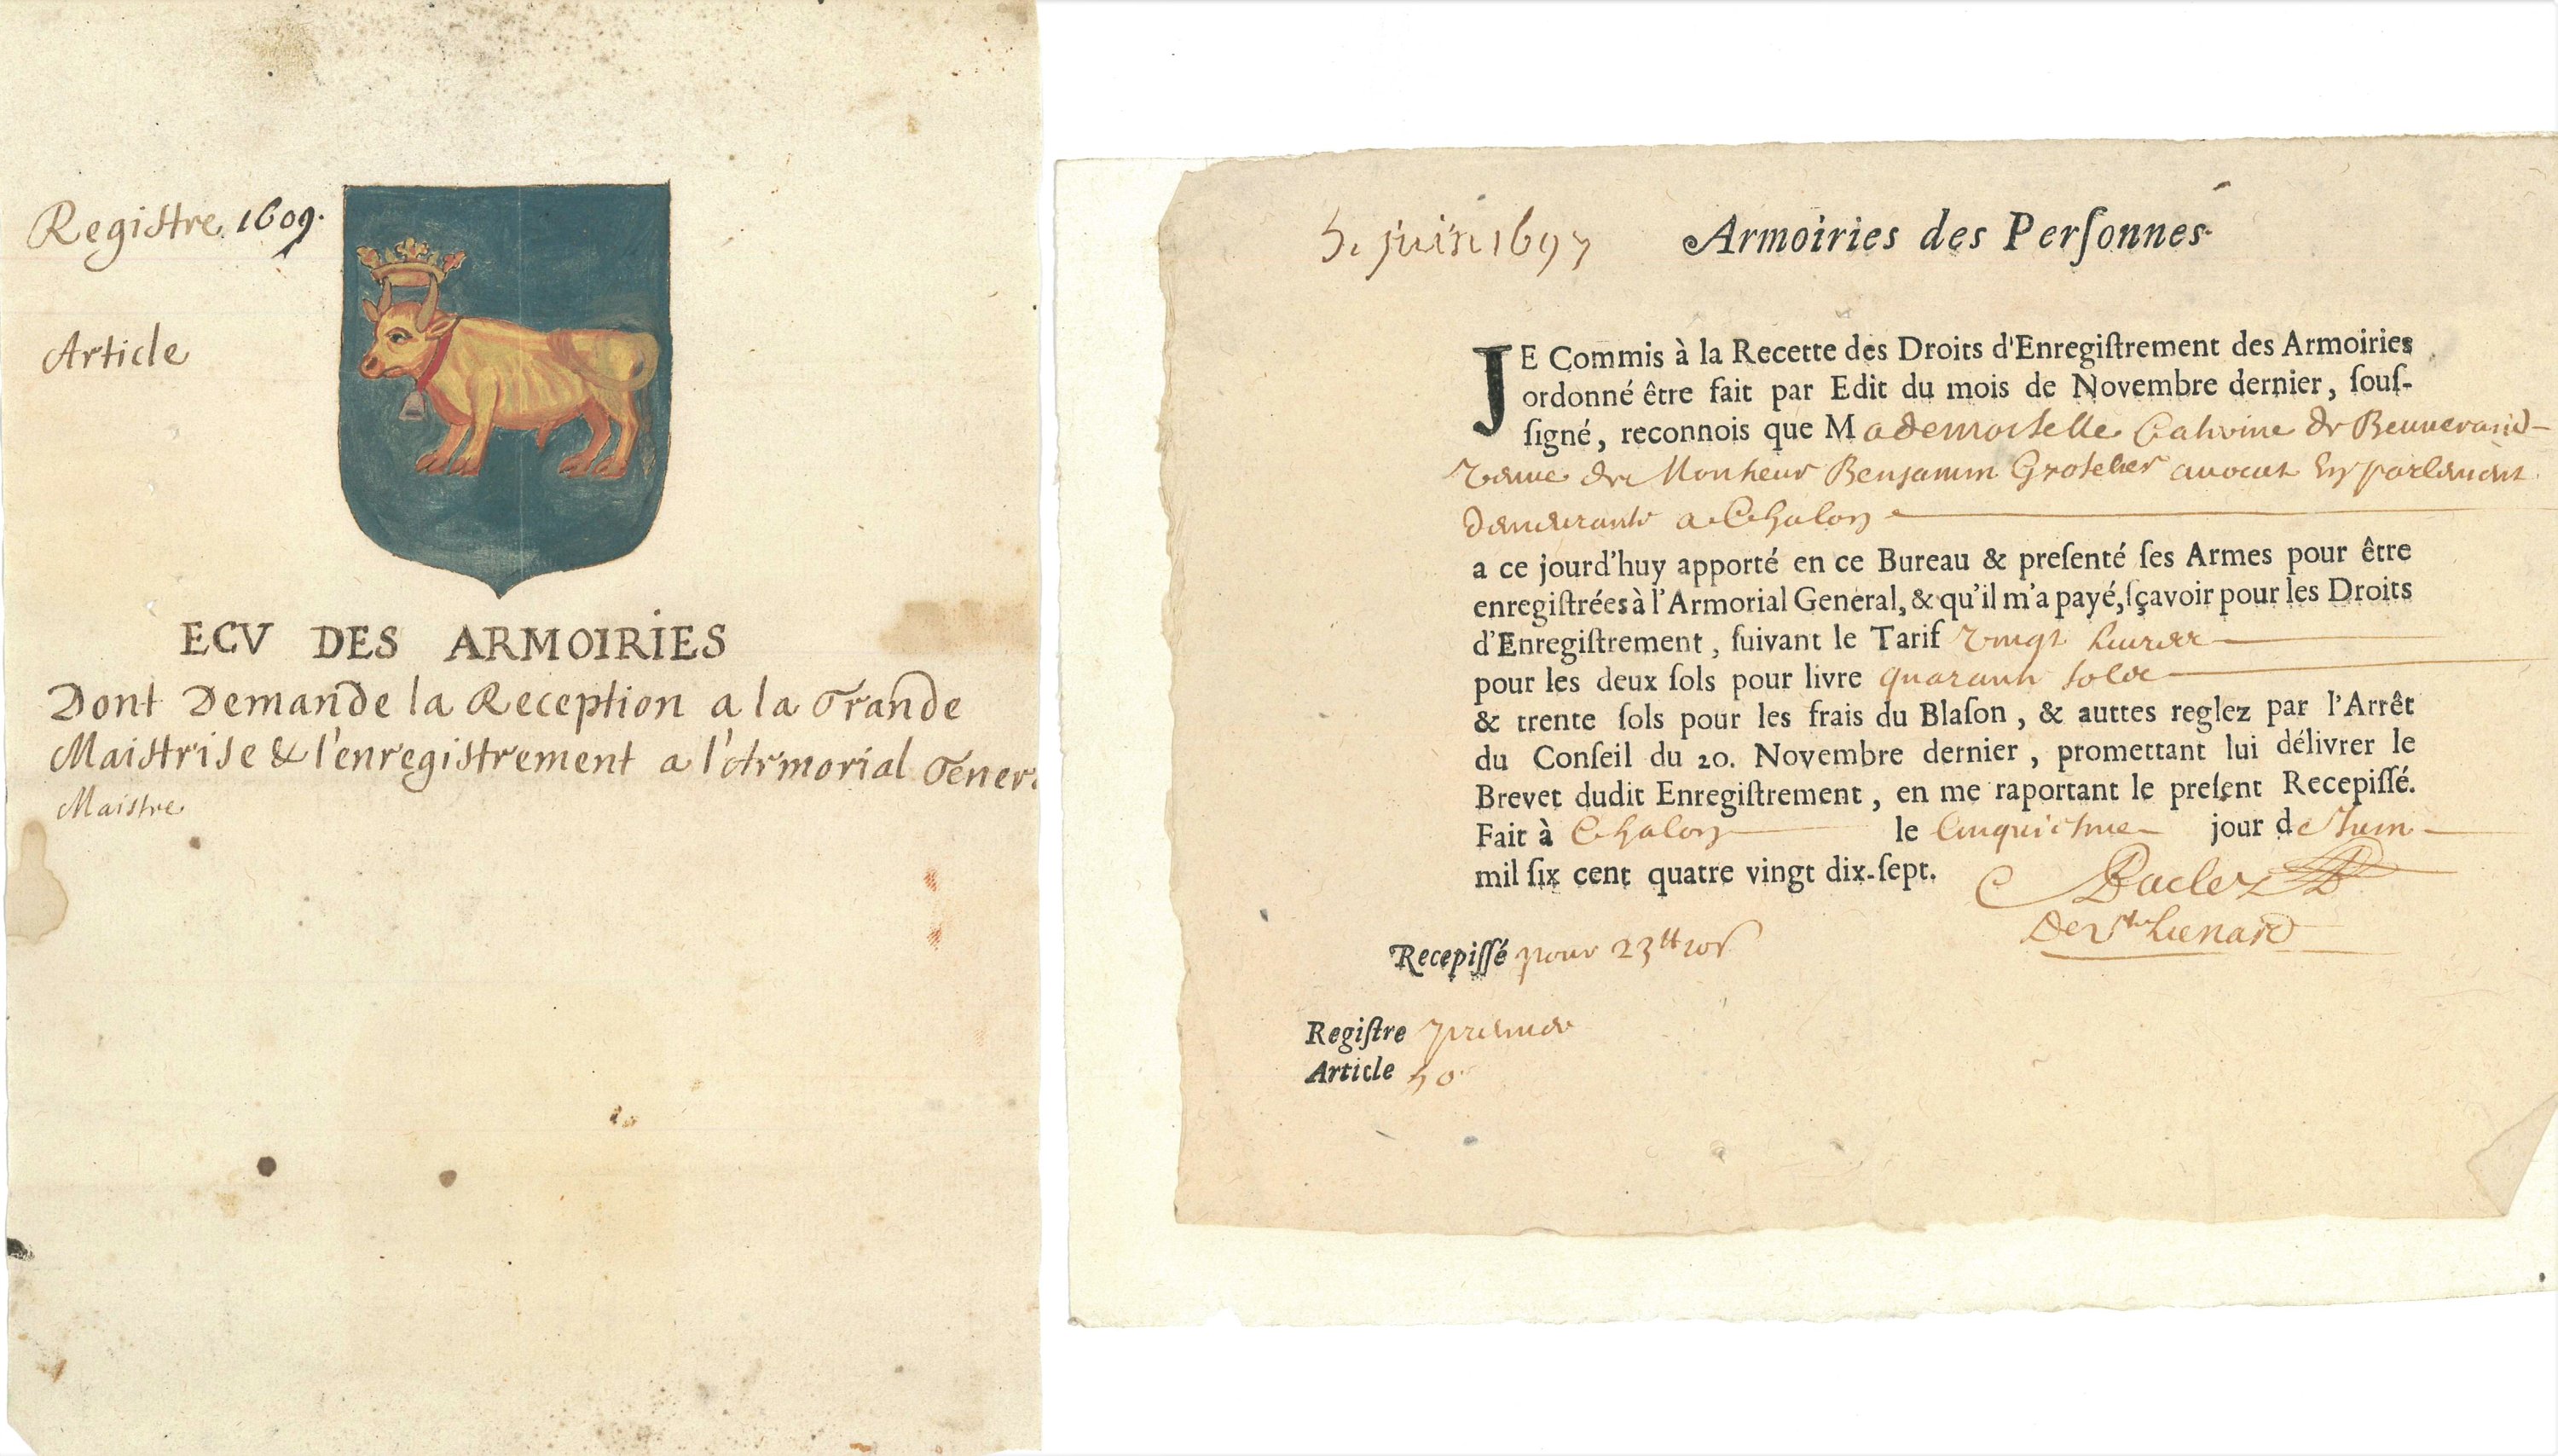 Registre 1609.
Article
ECV DES ARMOIRIES
Dont Demande la Reception a la Grande
Maistrise & l'enregistrement a l'Armorial Gener
Maistre
5. juin 1697
Armoiries des Perſonnes
JE Commis à la Recette des Droits d'Enregiſtrement des Armoiries
ordonné être fait par Edit du mois de Novembre dernier, ſouſ-
ſigné, reconnois que Mademoiselle Catherine de Beuverand
veuve de Monsieur Benjamin avocat en parlement
demeurante a Chalon
a ce jourd'huy apporté en ce Bureau & preſenté ſes Armes pour être
enregiſtrées à l'Armorial General, & qu'il m'a payé, ſçavoir pour les Droits
d'Enregiſtrement, ſuivant le Tarif vingt livres
pour les deux ſols pour livre quarante solz
& trente ſols pour les frais du Blaſon, & auttes reglez par l'Arrêt
du Conſeil du 20. Novembre dernier, promettant lui délivrer le
Brevet dudit Enregiſtrement, en me raportant le preſent Recepiſſé.
Fait à Chalon le Cinquiesme jour de Juin
mil ſix cent quatre vingt dix-ſept.
Recepiſſé pour 23tt 10s
Regiſtre premier
Article 50